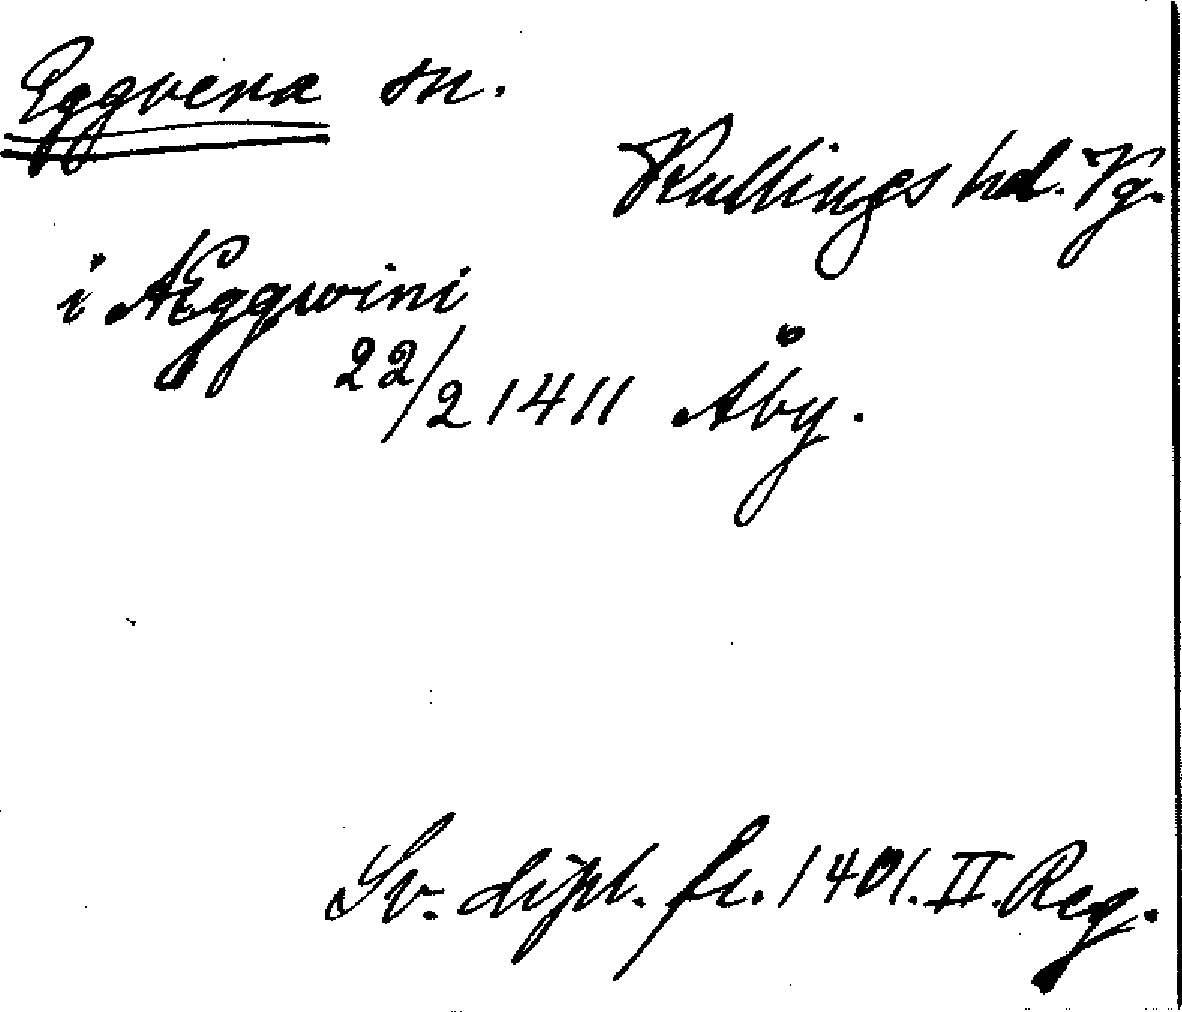 Eggvena sn.
Kullings hd. Vg.
i Æggwini
22/2 1411 Åby.
Sv. dipl. fr. 1401. II. Reg.